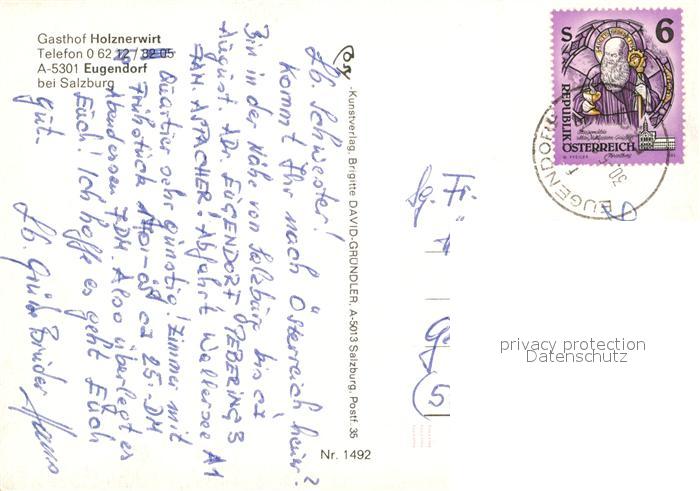 Gasthof Holznerwirt
Telefon 0 62 12 / 32 05
A-5301 Eugendorf
bei Salzburg
Lb. Schwester!
Kommt Ihr nach Österreich heuer?
Bin in der Nähe von Salzburg bis ca
August. ADr. EUGENDORF PEBERING 3
FAM. ASTACHER. Abfahrt Wallersee A1
Quartier sehr günstig! Zimmer mit
Frühstück ca 25.- DM
Abendessen 7.DM. Also überlegt es
Euch. Ich hoffe es geht Euch
gut.
Lb. Grüße Bruder Hans
-Kunstverlag, Brigitte DAVID-GRÜNDLER, A-5013 Salzburg, Postf. 35
Nr. 1492
S 6
REPUBLIK
ÖSTERREICH
EUGENDORF
30
Sg. Fr.
(5
privacy protection
Datenschutz